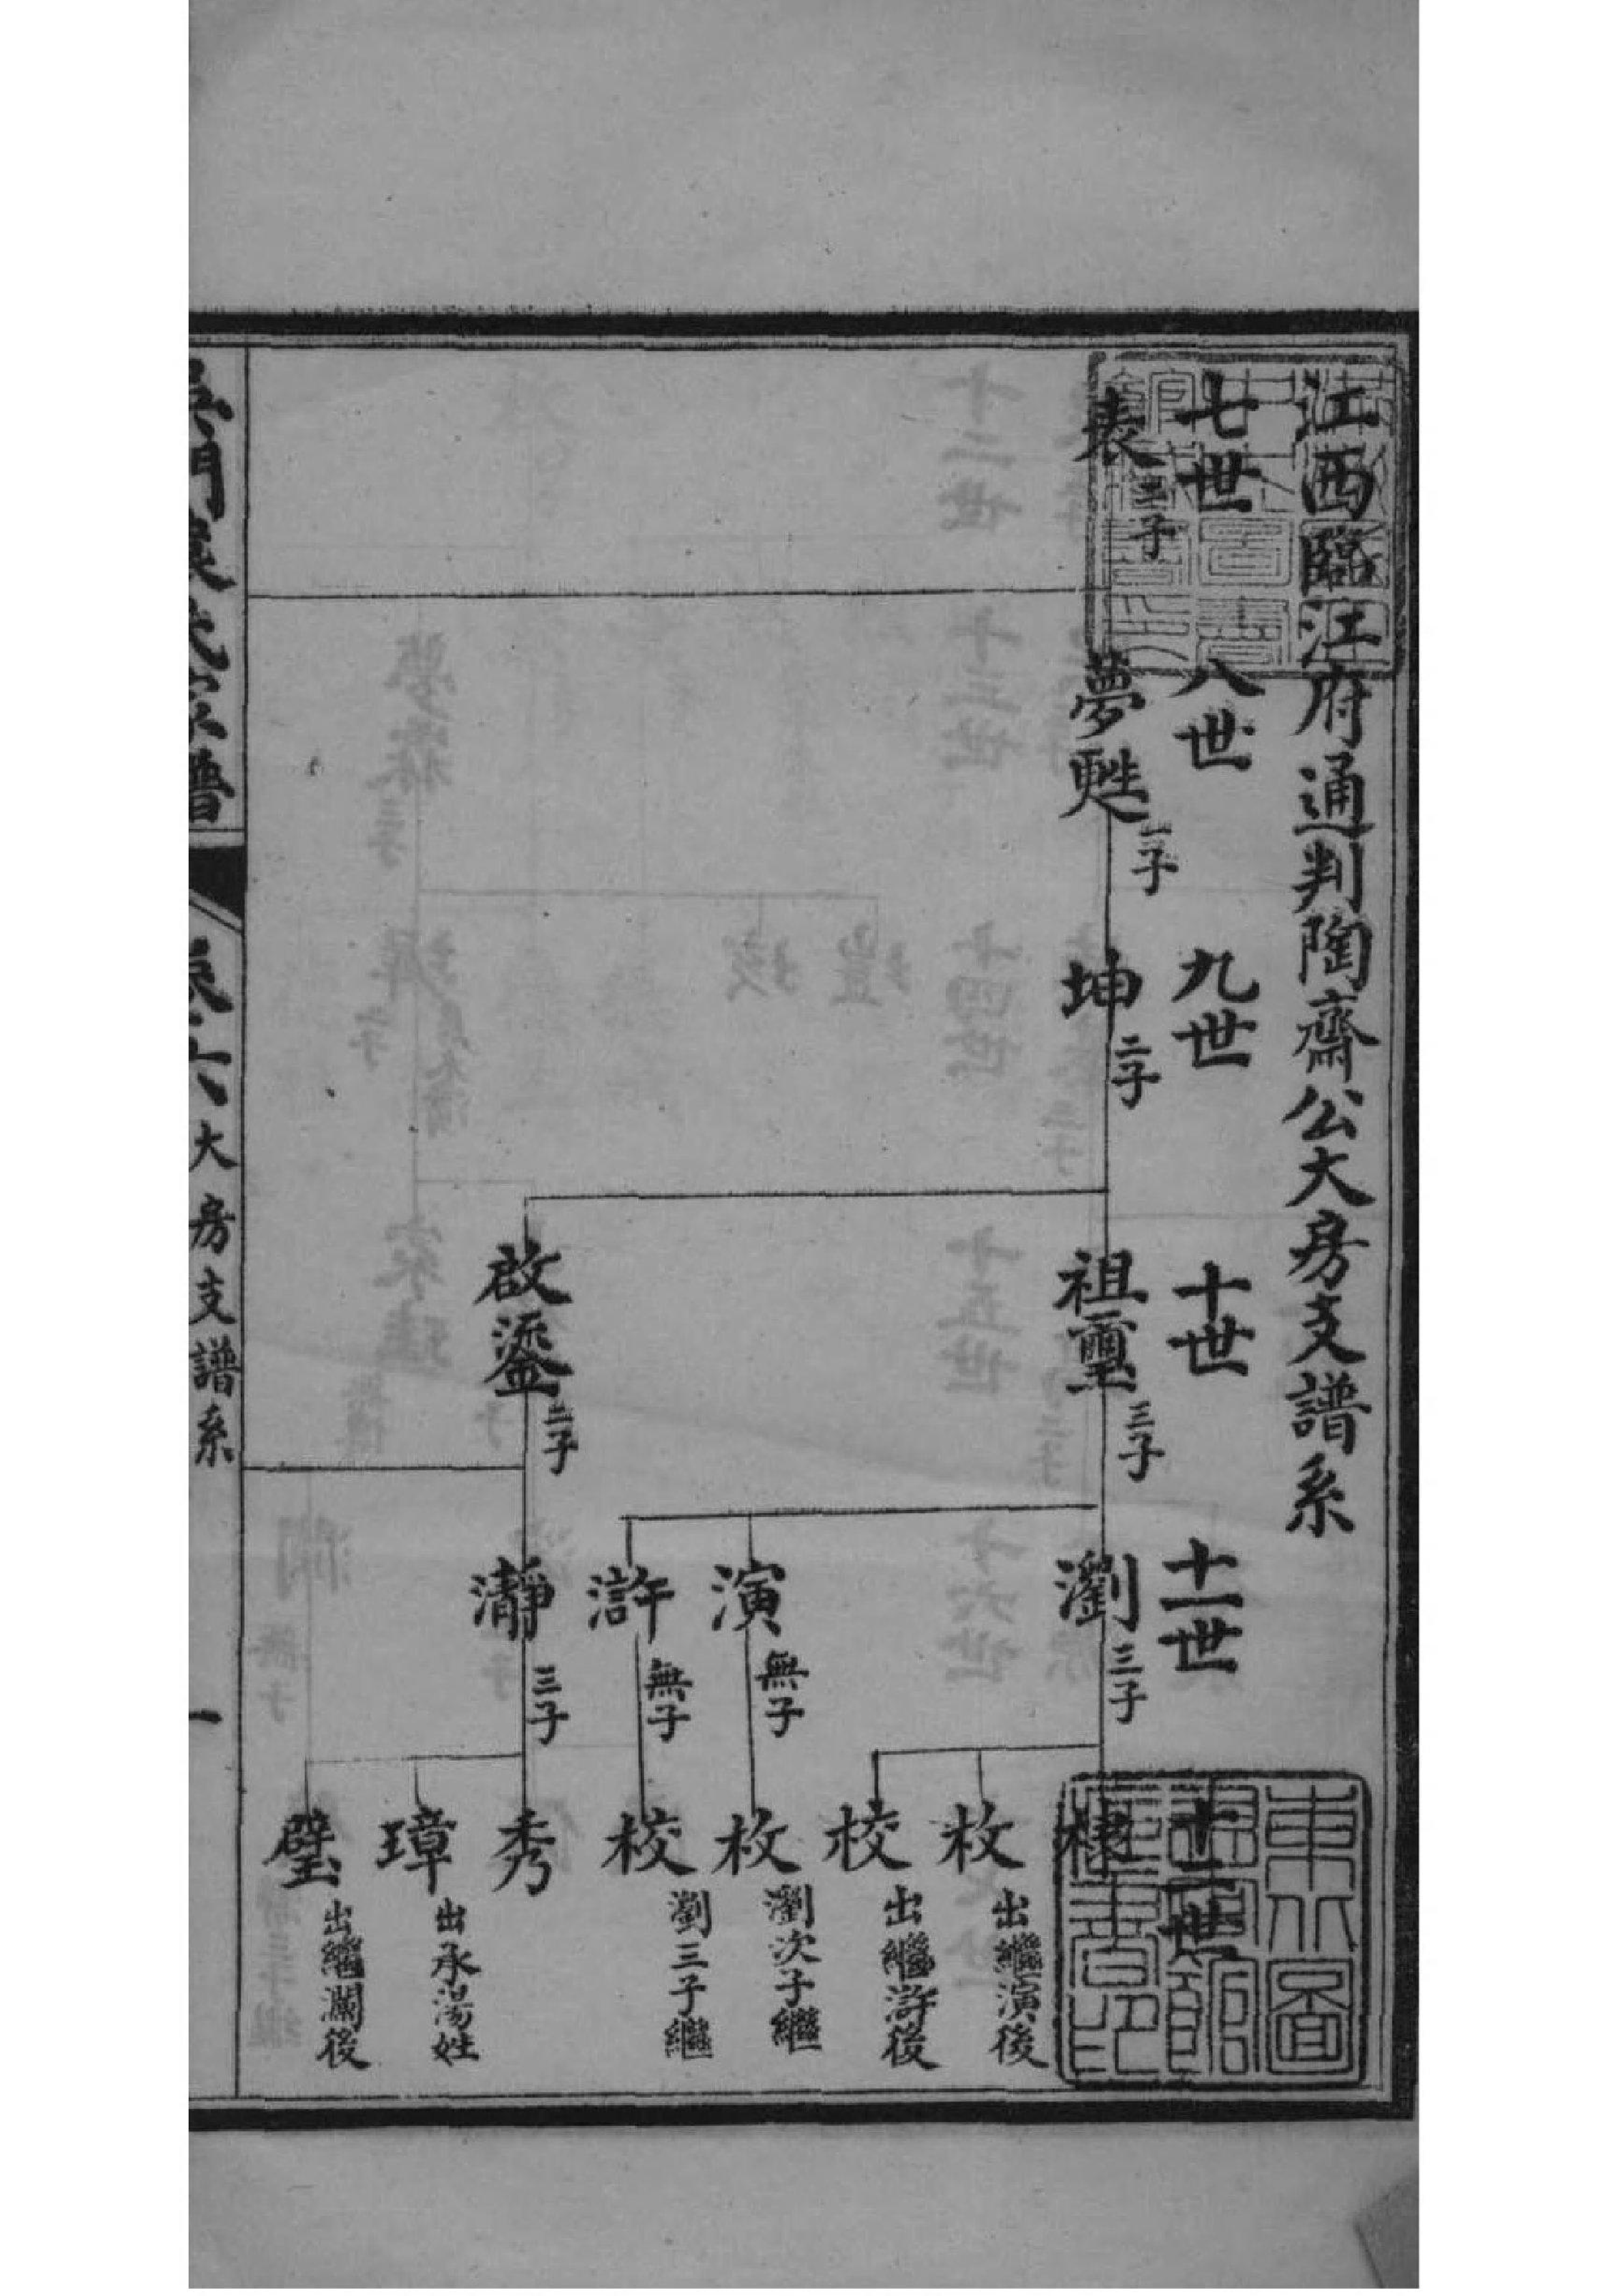 江西臨江府通判陶齋公大房支譜系
七世
八世
九世
十世
十一世
十二世
袠
夢甦 一子
坤 二子
祖璽 三子
瀏 三子
棣
枚 出繼演後
校 出繼滸後
演 無子
枚 瀏次子繼
滸 無子
校 瀏三子繼
啟鎏 二子
瀞 三子
秀
璋 出承湯姓
璧 出繼瀾後
吳門袁氏家譜
卷六 大房支譜系
一
東北圖書館所藏善本